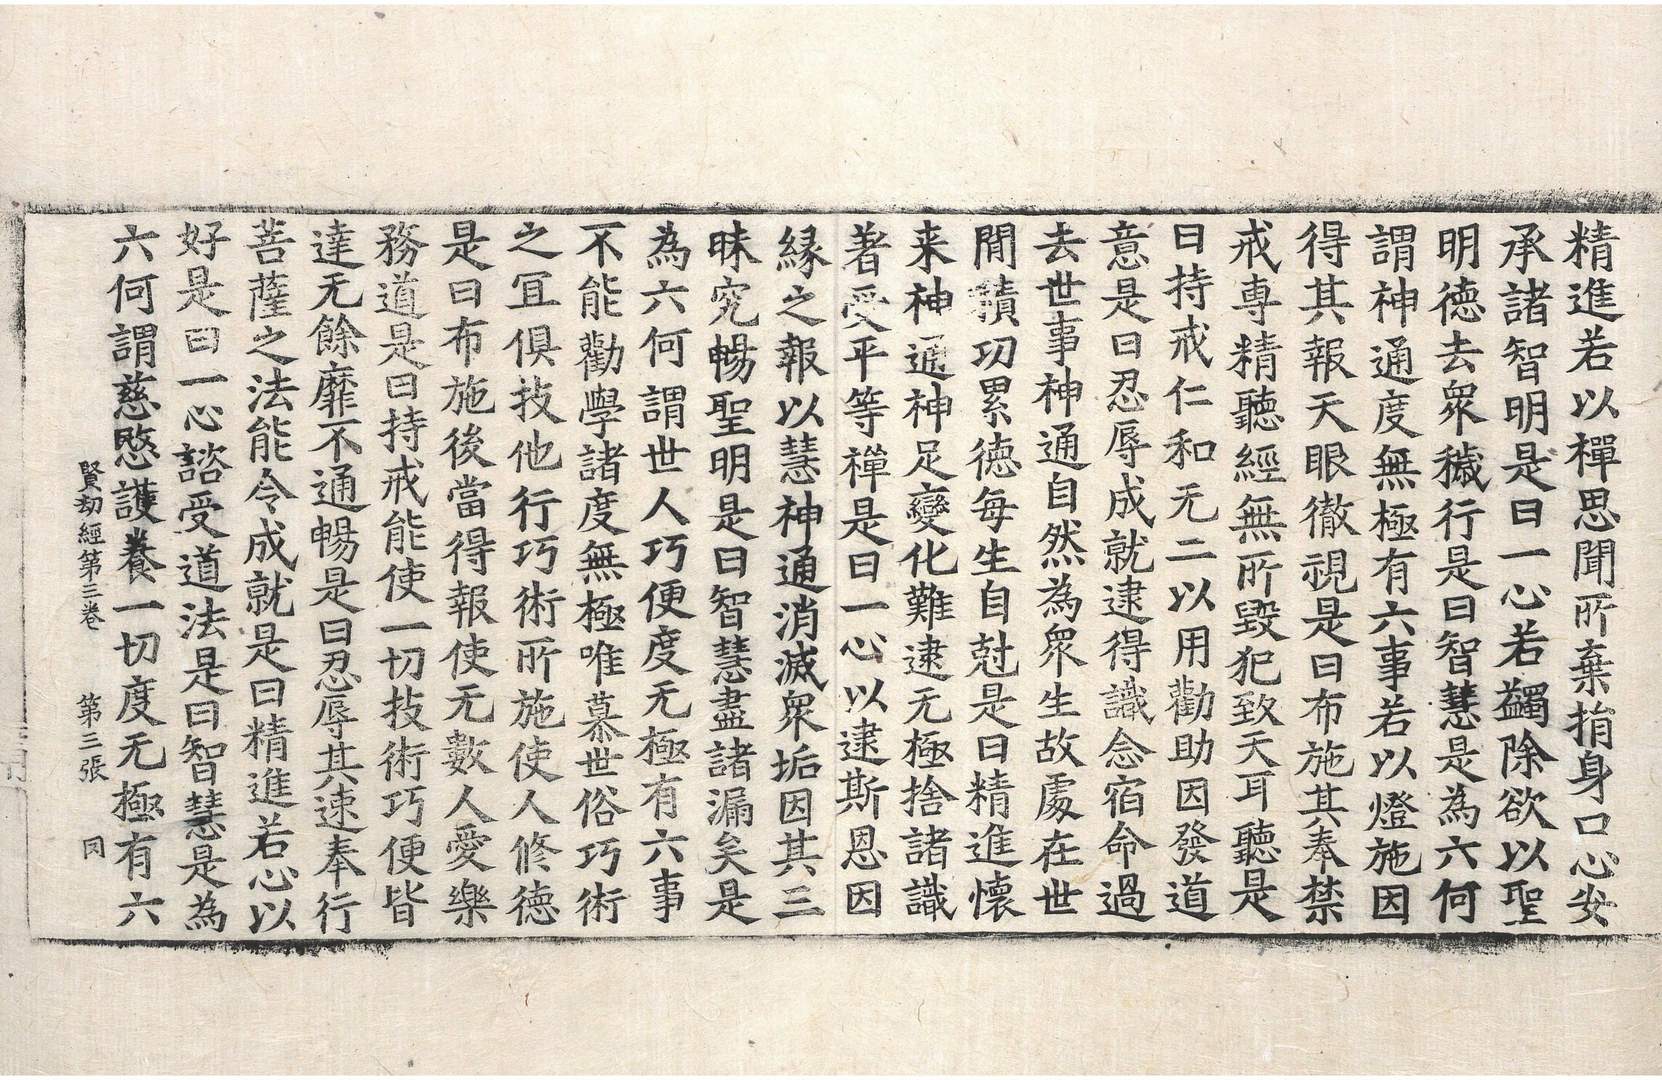 精進若以禪思聞所棄捐身口心安
承諸智明是曰一心若蠲除欲以聖
明德去衆穢行是曰智慧是為六何
謂神通度無極有六事若以燈施因
得其報天眼徹視是曰布施其奉禁
戒專精聽經無所毀犯致天耳聽是
曰持戒仁和无二以用勸助因發道
意是曰忍辱成就逮得識念宿命過
去世事神通自然為衆生故處在世
閒積功累德每生自尅是曰精進懷
来神通神足變化難逮无極捨諸識
著受平等禪是曰一心以逮斯恩因
緣之報以慧神通消滅衆垢因其三
昧究暢聖明是曰智慧盡諸漏矣是
為六何謂世人巧便度无極有六事
不能勸學諸度無極唯慕世俗巧術
之冝俱技他行巧術所施使人修德
是曰布施後當得報使无數人愛樂
務道是曰持戒能使一切技術巧便皆
達无餘靡不通暢是曰忍辱其速奉行
菩薩之法能令成就是曰精進若心以
好是曰一心諮受道法是曰智慧是為
六何謂慈愍護養一切度无極有六
賢劫經第三卷 第三張 同